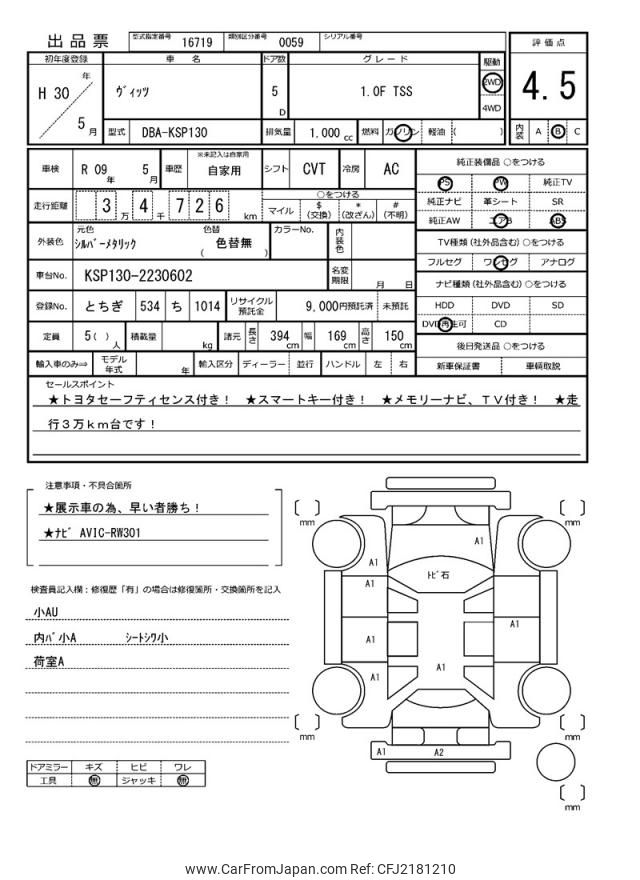 出品票 型式指定番号 16719 類別区分番号 0059 シリアル番号
評価点
4.5
内装 A B C
初年度登録 車名 ドア数 グレード 駆動
H 30 年 5 月 ヴィッツ 5 D 1.0F TSS 2WD 4WD
型式 DBA-KSP130 排気量 1.000 cc 燃料 ガソリン 軽油 ( )
車検 R 09 年 5 月 車歴 ※未記入は自家用 自家用 シフト CVT 冷房 AC
走行距離 3 万 4 千 7 2 6 km
○をつける
マイル $ (交換) * (改ざん) # (不明)
外装色 元色 シルバーメタリック 色替 ( 色替無 ) カラーNo. 内装色
車台No. KSP130-2230602 名変期限 月 日
登録No. とちぎ 534 ち 1014 リサイクル預託金 9,000円預託済 未預託
定員 5 ( ) 人 積載量 kg 諸元 長さ 394 cm 幅 169 cm 高さ 150 cm
輸入車のみ⇒ モデル年式 年 輸入区分 ディーラー 並行 ハンドル 左 右
純正装備品 ○をつける
PS PW 純正TV
純正ナビ 革シート SR
純正AW エアB ABS
TV種類 (社外品含む) ○をつける
フルセグ ワンセグ アナログ
ナビ種類 (社外品含む) ○をつける
HDD DVD SD
DVD再生可 CD
後日発送品 ○をつける
新車保証書 車輌取説
セールスポイント
★トヨタセーフティセンス付き! ★スマートキー付き! ★メモリーナビ、TV付き! ★走
行3万km台です!
注意事項・不具合箇所
★展示車の為、早い者勝ち!
★ナビ AVIC-RW301
検査員記入欄:修復歴「有」の場合は修復箇所・交換箇所を記入
小AU
内バ小A シートシワ小
荷室A
ドアミラー キズ ヒビ ワレ
工具 無 ジャッキ 無
mm
mm
A1
A1
トビ石
A1
A1
A1
A1
A1
mm
mm
A1 A2
mm
www.CarFromJapan.com Ref: CFJ2181210